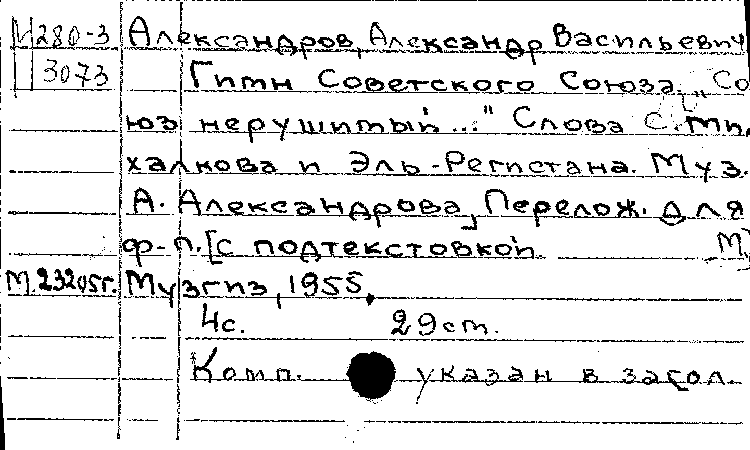 М280-3 Александров, Александр Васильевич
3073 Гимн Советского Союза. „Со
юз нерушимый..." Слова С. Ми
халкова и Эль-Регистана. Муз.
А. Александрова, Перелож. для
ф-п. [с подтекстовкой М,
М.23205г. Музгиз, 1955,
4с. 29см.
Комп. указан в загол.